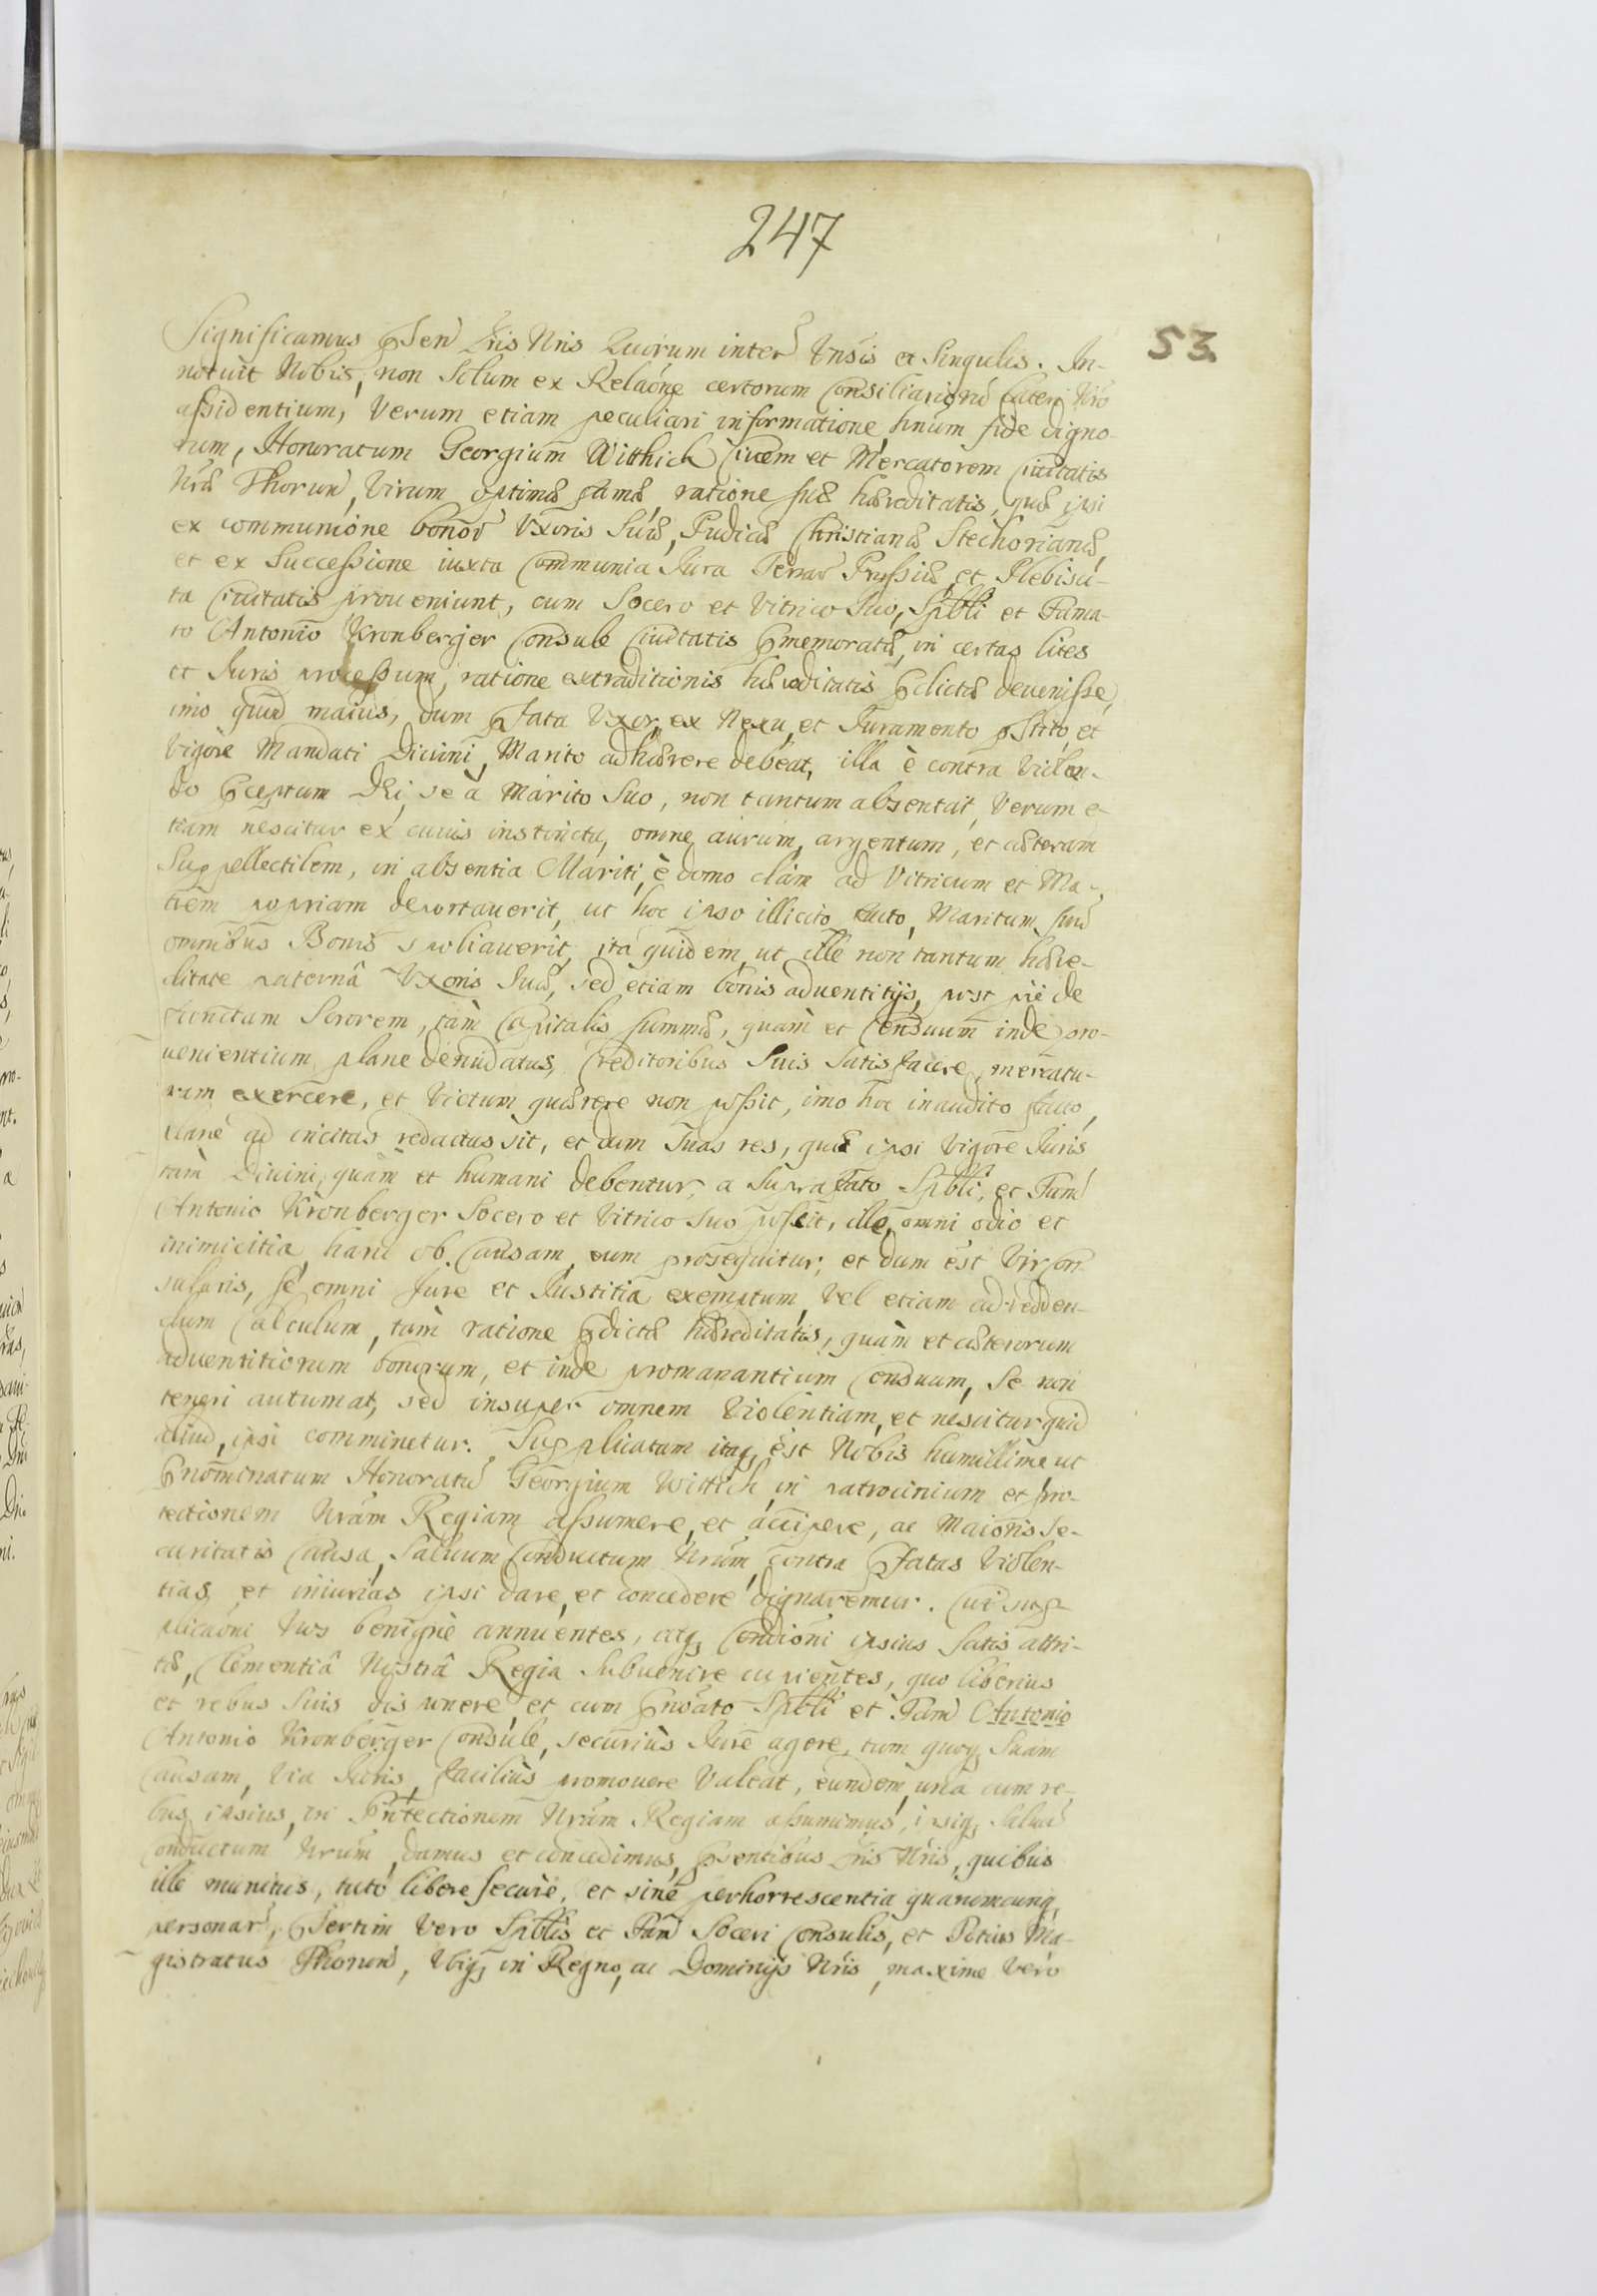 247
53
Significamus pñsen Lris Nris Quorum inter Vnsis et Singulis. In-
notuit Nobis, non Solum ex Relaõne certorum Consiliariorũ Lateri Nro
assidentium, Verum etiam peculiari informatione hnum fide digno-
rum, Honoratum Georgium Witthich Ciuem et Mercatorem Ciuitatis
Nræ Thorun, Virum optimæ famæ, ratione suæ hæreditatis, quæ ipsi
ex communione bonor Vxoris Suæ, Pudicæ Christianæ Stechorianæ,
et ex Successione iuxta Communia Jura Terrar Prussiæ et Plebisci-
ta Ciuitatis proueniunt, cum Socero et Vitrico Suo, Spbli et Fama-
to Antonio Kronberger Consule Ciuitatis pmemoratæ, in certas lites
et Juris processum, ratione extraditionis hæreditatis pdictæ deuenisse,
imo quod maius, dum pfata Vxor, ex Nexu, et Juramento pstito, et
Vigore Mandati Diuini, Marito adhærere debeat, illa è contra Violan-
do pceptum Dei, se à Marito Suo, non tantum absentat, Verum e-
tiam nescitur ex cuius instinctu, omne aurum, argentum, et cæteram
Suppellectilem, in absentia Mariti, è domo clam ad Vitricum et Ma-
trem propriam deportauerit, ut hoc ipso illicito facto, Maritum suũ
omnibus Bonis spoliauerit, ita quidem ut ille non tantum hære-
ditate paternâ Vxoris Suæ, sed etiam bonis aduentitijs, post piè de
functam Sororem, tàm Capitalis summæ, quàm et Censuum inde pro-
uenientium plane denudatus, Creditoribus Suis Satisfacere, mercatu-
ram exercere, et Victum quærere non possit, imo hoc inaudito facto,
plane ad incitas redactus sit, et dum Suas res, quæ ipsi Vigore Juris
tàm Diuini, quàm et humani debentur, a Suprafato Spbli, et Fam
Antonio Kronberger Socero et Vitrico Suo poscit, ille, omni odio et
inimicitia, hanc ob Causam, eum prosequitur, et dum est Vir Con-
sularis, se omni Jure et Justitia exemptum, Vel etiam ad redden-
dum Calculum, tàm ratione pdictæ hæreditatis, quàm et cæterorum
aduentitiorum bonorum, et inde promanantium Censuum, Se non
teneri autumat, sed insuper omnem Violentiam, et nescitur quid
aliud, ipsi comminetur. Supplicatum itaq, est Nobis humillime ut
pnominatum Honoratũ Georgium Wittich in patrocinium et pro-
tectionem Nram Regiam assumere, et accipere, ac Maioris Se-
curitatis Causa, Saluum Conductum Nrum, contra pfatas Violen-
tias et iniurias ipsi dare, et concedere dignaremur. Cui sup-
plicaõni Nos benignè annuentes, atq, Condioñi ipsius Satis attri-
tæ, Clementiâ Nostrâ Regia Subuenire cupientes, quo liberius
et rebus Suis disponere, et cum pnoãto Spbli et Fam Antonio
Antonio Kronberger Consule, securiùs Jure agere, tum quoq, Suam
Causam, Via Juris, faciliùs promouere Valeat, eundem, una cum re-
bus ipsius, in Protectionem Nram Regiam assumimus, ipsiq, Saluũ
Conductum Nrum, damus et concedimus, psentibus Lris Nris, quibus
ille munitus, tutò libere securè, et sine perhorrescentia quarumcunq,
personar, psertim Vero Spblis et Fam Soceri Consulis, et Totius Ma-
gistratus Thorun, Vbiq, in Regno, ac Dominijs Nris, maxime Vero